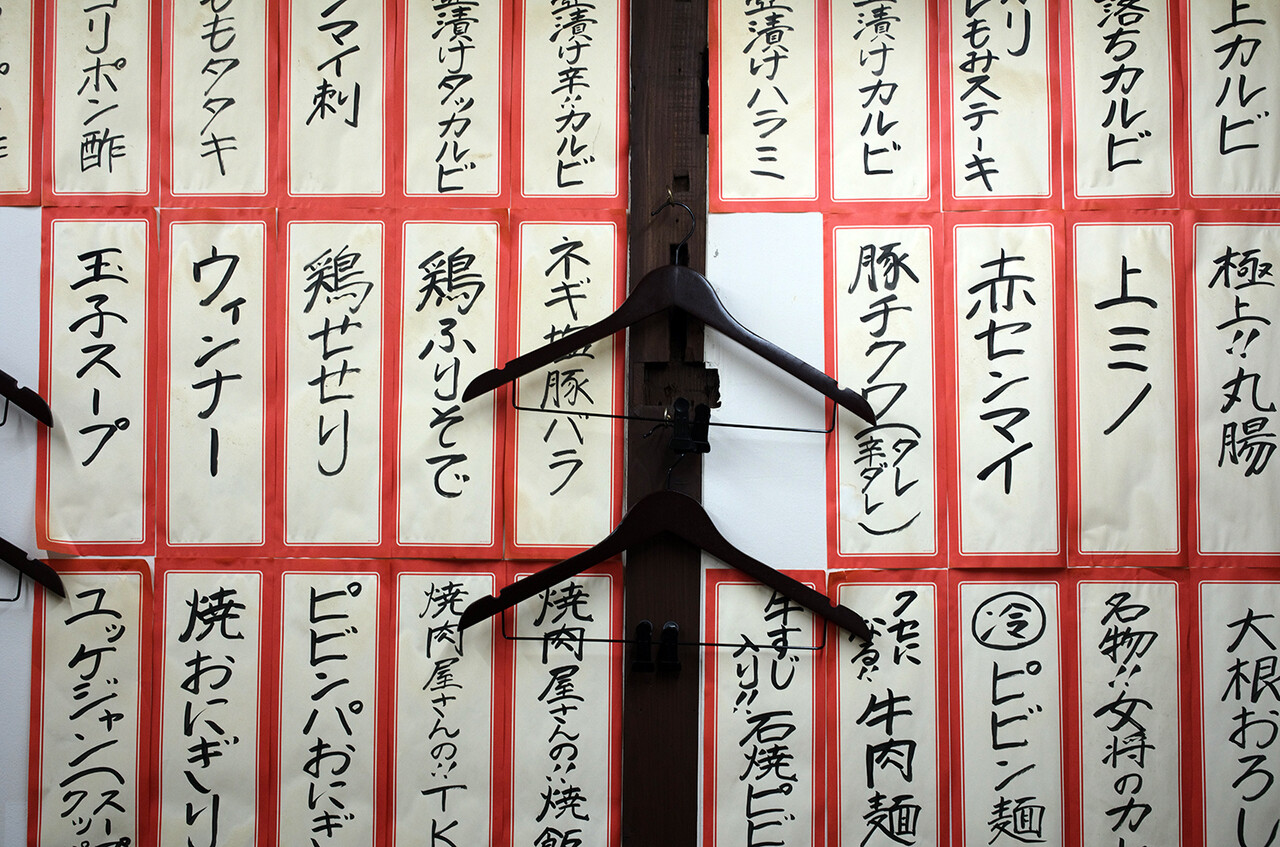 上カルビ
落ちカルビ
もみステーキ
漬けカルビ
壺漬けハラミ
漬け辛!!カルビ
漬けタッカルビ
マイ刺
もタタキ
リポン酢
極上!!丸腸
上ミノ
赤センマイ
豚チクワ(タレ
辛ダレ)
ネギ塩豚バラ
鶏ふりそで
鶏せせり
ウィンナー
玉子スープ
大根おろし
名物!!女将のカ
冷ピビン麺
クセに
なる!!
牛肉麺
牛すじ
入り!!
石焼ピビ
焼肉屋さんの!!焼飯
焼肉屋さんの!!TK
ピビンパおにぎ
焼おにぎり
ユッケジャン(スープ
クッパ